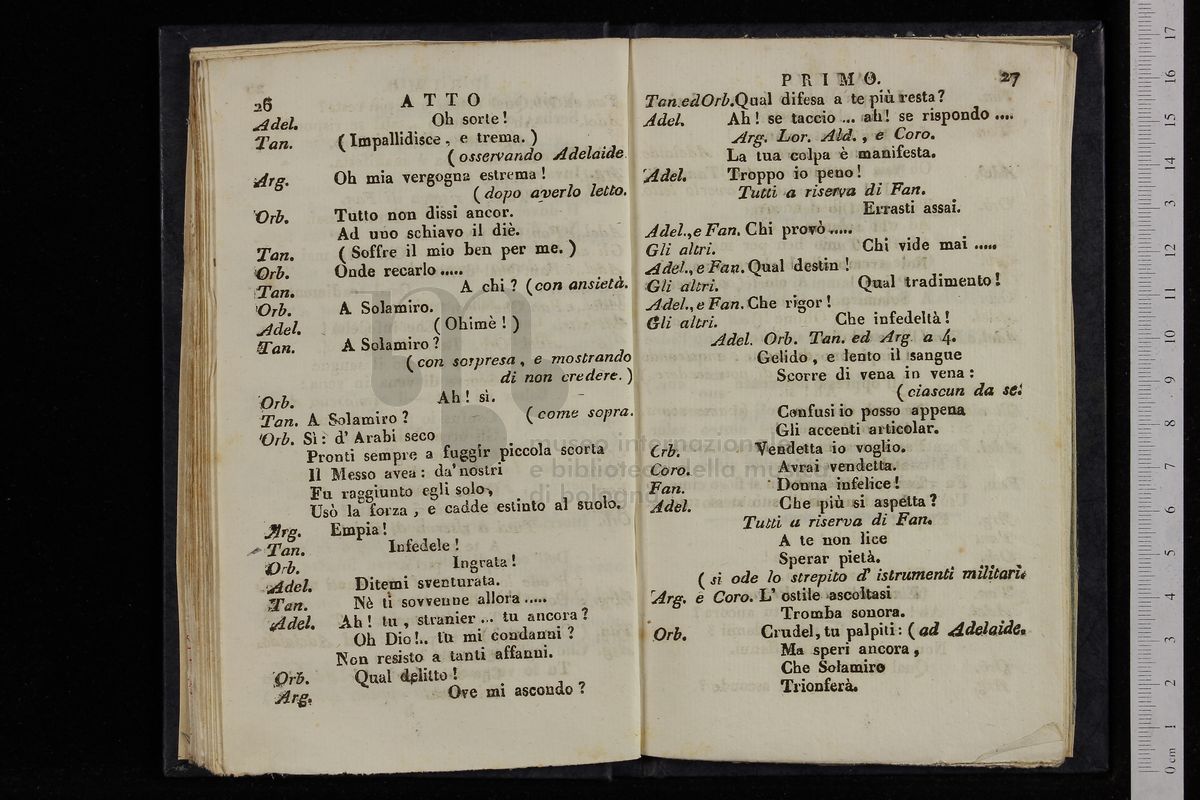 26 ATTO
Adel. Oh sorte!
Tan. (Impallidisce, e trema.)
(osservando Adelaide.
Arg. Oh mia vergogna estrema!
(dopo averlo letto.
Orb. Tutto non dissi ancor.
Ad uno schiavo il diè.
Tan. (Soffre il mio ben per me.)
Orb. Onde recarlo.....
Tan. A chi? (con ansietà.
Orb. A Solamiro.
Adel. (Ohimè!)
Tan. A Solamiro?
(con sorpresa, e mostrando
di non credere.)
Orb. Ah! sì.
Tan. A Solamiro? (come sopra.
Orb. Sì: d'Arabi seco
Pronti sempre a fuggir piccola scorta
Il Messo avea: da'nostri
Fu raggiunto egli solo,
Usò la forza, e cadde estinto al suolo.
Arg. Empia!
Tan. Infedele!
Orb. Ingrata!
Adel. Ditemi sventurata.
Tan. Nè ti sovvenne allora.....
Adel. Ah! tu, stranier... tu ancora?
Oh Dio!.. tu mi condanni?
Non resisto a tanti affanni.
Orb. Qual delitto!
Arg. Ove mi ascondo?
PRIMO. 27
Tan.edOrb. Qual difesa a te più resta?
Adel. Ah! se taccio... ah! se rispondo....
Arg. Lor. Ald., e Coro.
La tua colpa è manifesta.
Adel. Troppo io peno!
Tutti a riserva di Fan.
Errasti assai.
Adel.,e Fan. Chi provò.....
Gli altri. Chi vide mai.....
Adel.,e Fan. Qual destin!
Gli altri. Qual tradimento!
Adel.,e Fan. Che rigor!
Gli altri. Che infedeltà!
Adel. Orb. Tan. ed Arg. a 4.
Gelido, e lento il sangue
Scorre di vena in vena:
(ciascun da se.
Confusi io posso appena
Gli accenti articolar.
Orb. Vendetta io voglio.
Coro. Avrai vendetta.
Fan. Donna infelice!
Adel. Che più si aspetta?
Tutti a riserva di Fan.
A te non lice
Sperar pietà.
(si ode lo strepito d'istrumenti militari.
Arg. e Coro. L'ostile ascoltasi
Tromba sonora.
Orb. Crudel, tu palpiti: (ad Adelaide.
Ma speri ancora,
Che Solamiro
Trionferà.
museo internazionale
e biblioteca della musica
di bologna
0 cm 1 2 3 4 5 6 7 8 9 10 11 12 13 14 15 16 17